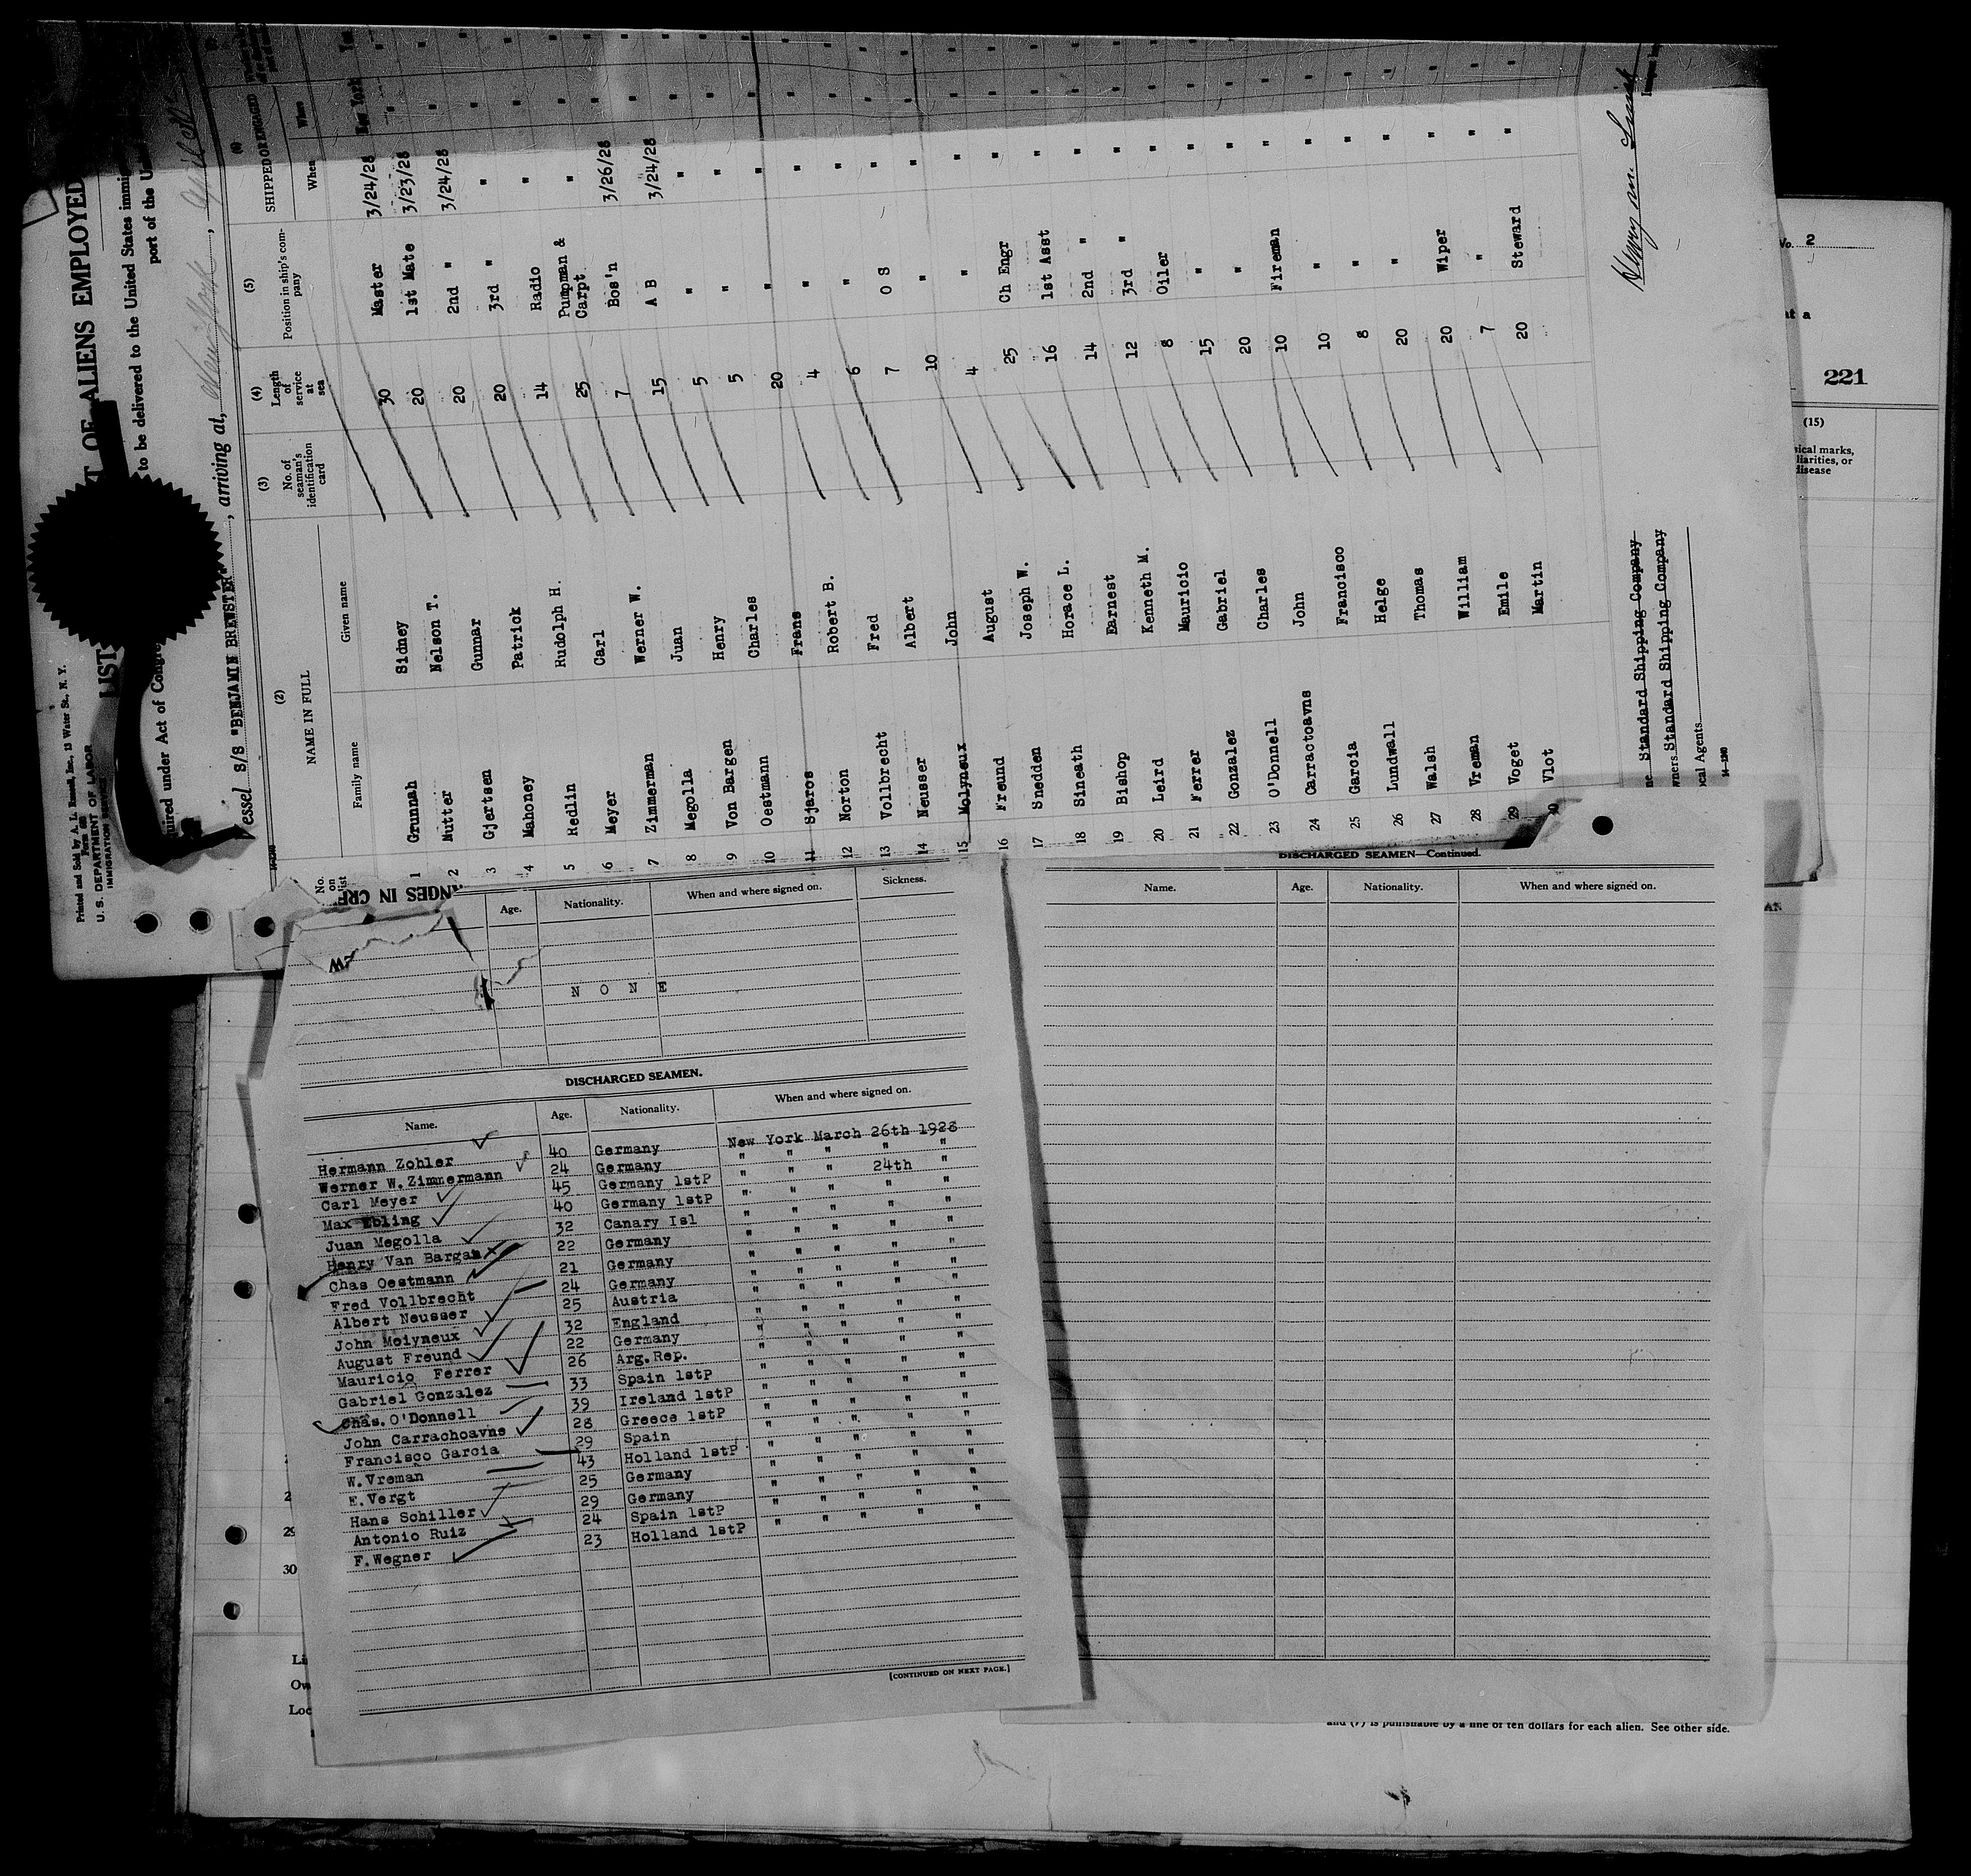 Printed and Sold by A. L. Russell, Inc., 13 Water St., N. Y.
U. S. DEPARTMENT OF LABOR
IMMIGRATION SERVICE
LIST OF ALIENS EMPLOYED
to be delivered to the United States
port of the
Vessel S/S "BENJAMIN BREWSTER", arriving at,
No. on list (2) NAME IN FULL Family name Given name (3) No. of seaman's identification card (4) Length of service at sea (5) Position in ship's company (6) SHIPPED OR ENGAGED When Where
1 Grunnah Sidney 30 Master 3/24/28 New York
2 Nutter Nelson T. 20 1st Mate 3/23/28 "
3 Gjertsen Gunnar 20 2nd " 3/24/28 "
4 Mahoney Patrick 20 3rd " " "
5 Redlin Rudolph H. 14 Radio " "
6 Meyer Carl 25 Pumpman & Carpt " "
7 Zimmerman Werner W. 7 Bos'n 3/26/28 "
8 Megolla Juan 15 A B 3/24/28 "
9 Von Bargen Henry 5 " " "
10 Oestmann Charles 5 " " "
11 Sjaros Frans 20 " " "
12 Norton Robert B. 4 " " "
13 Vollbrecht Fred 6 " " "
14 Neusser Albert 7 O S " "
15 Molyneux John 10 " " "
16 Freund August 4 " " "
17 Snedden Joseph W. 25 Ch Engr " "
18 Sineath Horace L. 16 1st Asst " "
19 Bishop Earnest 14 2nd " " "
20 Leird Kenneth M. 12 3rd " " "
21 Ferrer Mauricio 8 Oiler " "
22 Gonzalez Gabriel 15 " " "
23 O'Donnell Charles 20 " " "
24 Carractoavns John 10 Fireman " "
25 Garcia Francisco 10 " " "
26 Lundwall Helge 8 " " "
27 Walsh Thomas 20 " " "
28 Vreman William 20 Wiper " "
29 Voget Emile 7 " " "
30 Vlot Martin 20 Steward " "
Standard Shipping Company
Standard Shipping Company
Local Agents
No. 2
221
(15)
disease
Age. Nationality. When and where signed on. Sickness.
N O N E
DISCHARGED SEAMEN.
Name. Age. Nationality. When and where signed on.
Hermann Zohler 40 Germany New York March 26th 1928
Werner W. Zimmermann 24 Germany " " " " "
Carl Meyer 45 Germany 1stP " " " 24th "
Max Ebling 40 Germany 1stP " " " " "
Juan Megolla 32 Canary Isl " " " " "
Henry Van Bargan 22 Germany " " " " "
Chas Oestmann 21 Germany " " " " "
Fred Vollbrecht 24 Germany " " " " "
Albert Neusser 25 Austria " " " " "
John Molyneux 32 England " " " " "
August Freund 22 Germany " " " " "
Mauricio Ferrer 26 Arg. Rep. " " " " "
Gabriel Gonzalez 33 Spain 1stP " " " " "
Chas. O'Donnell 39 Ireland 1stP " " " " "
John Carrachoavns 28 Greece 1stP " " " " "
Francisco Garcia 29 Spain " " " " "
W. Vreman 43 Holland 1stP " " " " "
E. Vergt 25 Germany " " " " "
Hans Schiller 29 Germany " " " " "
Antonio Ruiz 24 Spain 1stP " " " " "
F. Wegner 23 Holland 1stP " " " " "
[CONTINUED ON NEXT PAGE.]
DISCHARGED SEAMEN—Continued.
Name. Age. Nationality. When and where signed on.
29
30
and (7) is punishable by a fine of ten dollars for each alien. See other side.